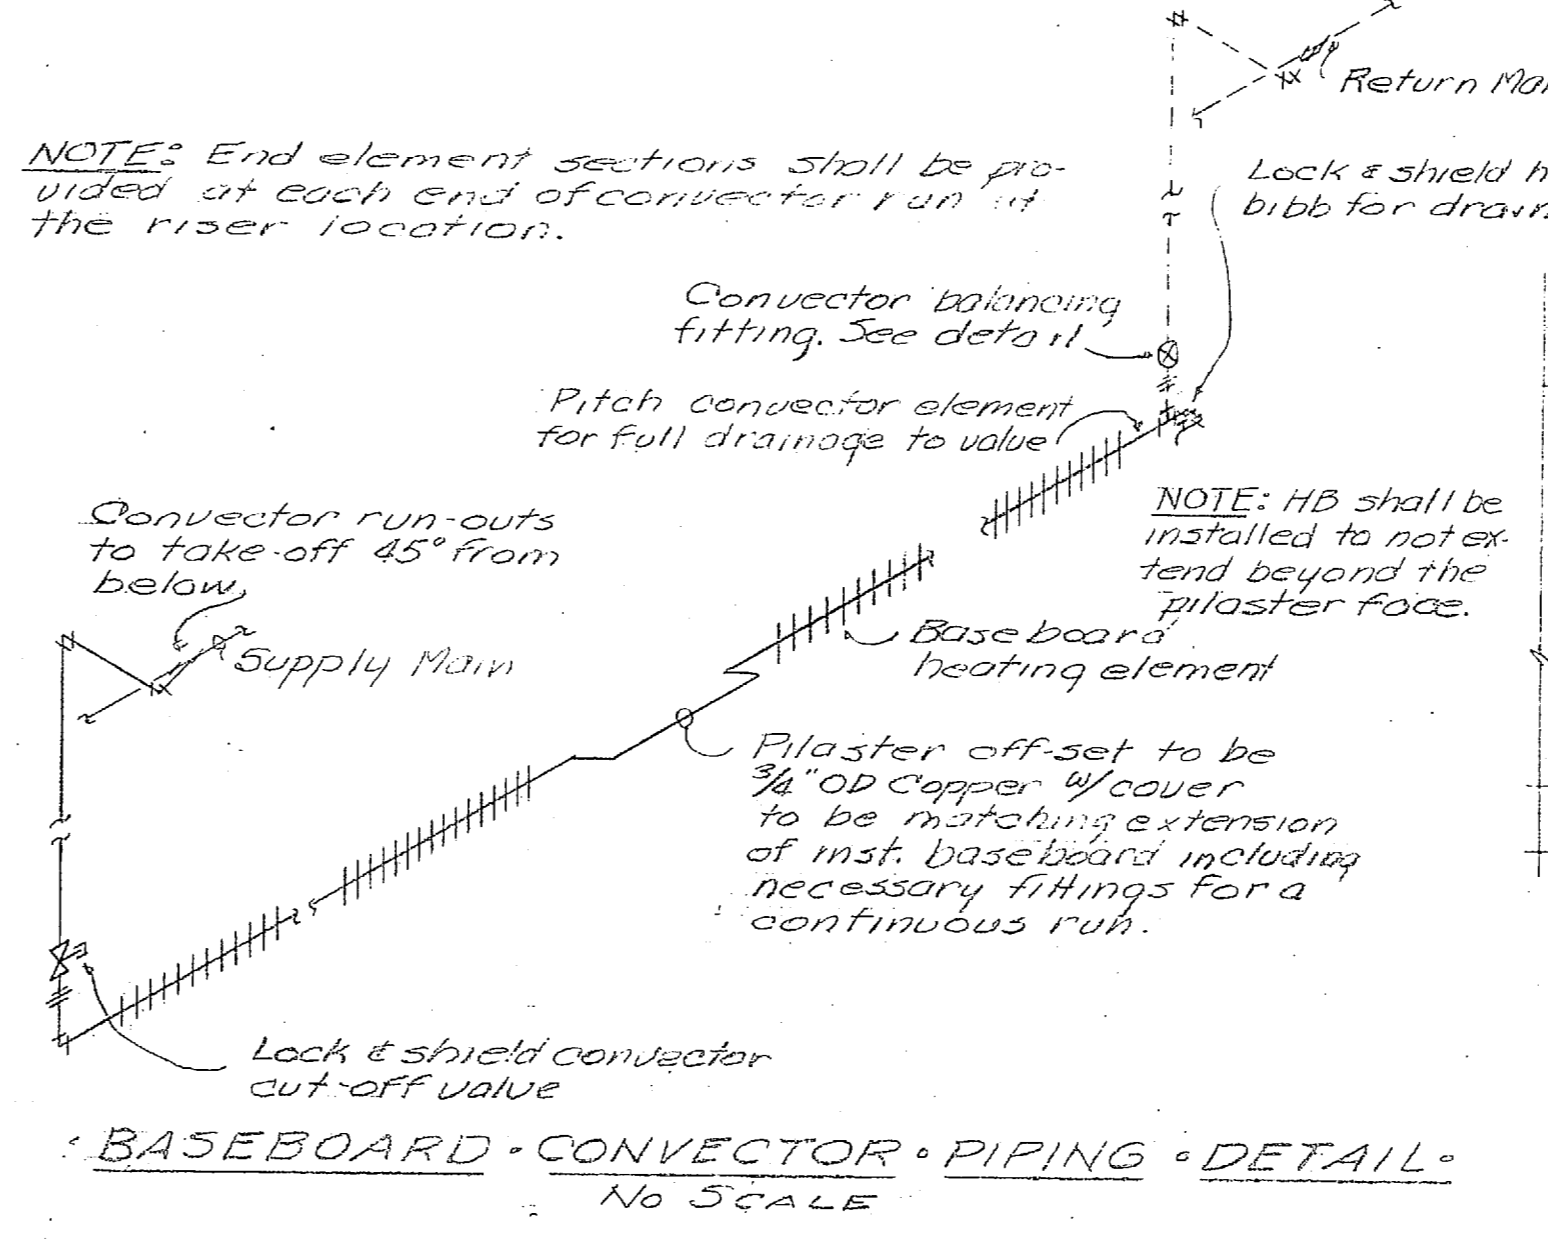 Return Ma
NOTE: End element sections shall be pro-
vided at each end of convector run at
the riser location.
Lock & shield h
bibb for drain
Convector balancing
fitting. See detail
Pitch convector element
for full drainage to valve
Convector run-outs
to take-off 45° from
below
NOTE: HB shall be
installed to not ex-
tend beyond the
pilaster face.
Supply Main
Baseboard
heating element
Pilaster off-set to be
3/4" OD Copper w/ cover
to be matching extension
of inst. baseboard including
necessary fittings for a
continuous run.
Lock & shield convector
cut-off valve
BASEBOARD • CONVECTOR • PIPING • DETAIL •
No SCALE